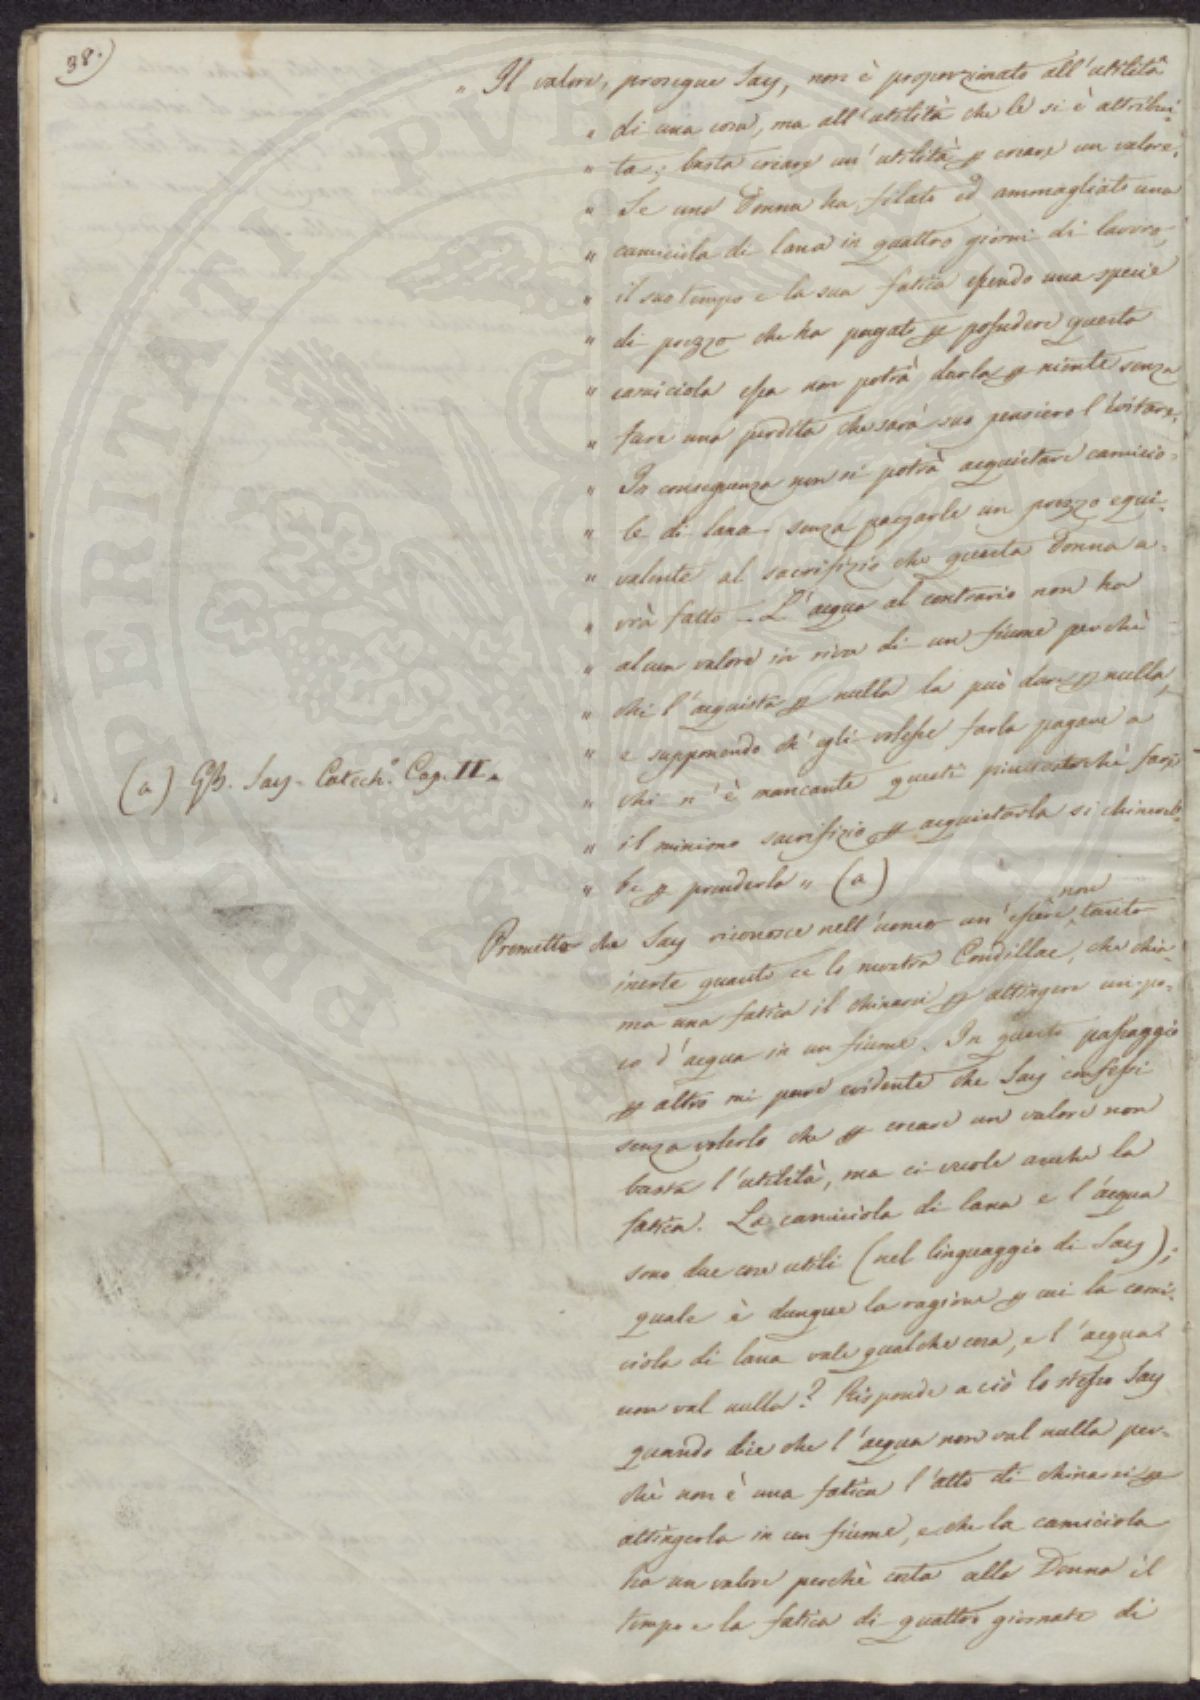 38.
„ Il valore, prosegue Say, non è proporzionato all'utilità
„ di una cosa, ma all'utilità che le si è attribui-
„ ta; basta creare un'utilità p creare un valore.
„ Se una Donna ha filato ed ammagliato una
„ camiciola di lana in quattro giorni di lavoro,
„ il suo tempo e la sua fatica essendo una specie
„ di prezzo che ha pagato p possedere questa
„ camiciola essa non potrà darla p niente senza
„ fare una perdita che sarà suo pensiero l'evitare.
„ In conseguenza non si potrà acquistare camicio-
„ le di lana senza pagarle un prezzo equi-
„ valente al sacrifizio che questa Donna a-
„ vrà fatto - L'acqua al contrario non ha
„ alcun valore in riva di un fiume perchè
„ chi l'acquista p nulla la può dare p nulla,
„ e supponendo ch'egli volesse farla pagare a
„ chi n'è mancante questi piuttostochè fare
„ il minimo sacrifizio p acquistarla si chinereb-
„ be p prenderla „ (a)
(a) GB. Say - Catech.o Cap. II.
Premetto che Say riconosce nell'uomo un'essere non tanto
inerte quanto ce lo mostra Condillac, che chia-
ma una fatica il chinarsi p attingere un po-
co d'acqua in un fiume. In questo passaggio
p altro mi pare evidente che Say confessi
senza volerlo che p creare un valore non
basta l'utilità, ma ci vuole anche la
fatica. La camiciola di lana e l'acqua
sono due cose utili (nel linguaggio di Say);
quale è dunque la ragione p cui la cami-
ciola di lana vale qualche cosa, e l'acqua
non val nulla? Risponde a ciò lo stesso Say
quando dice che l'acqua non val nulla per-
chè non è una fatica l'atto di chinarsi p
attingerla in un fiume, e che la camiciola
ha un valore perchè costa alla Donna il
tempo e la fatica di quattro giornate di